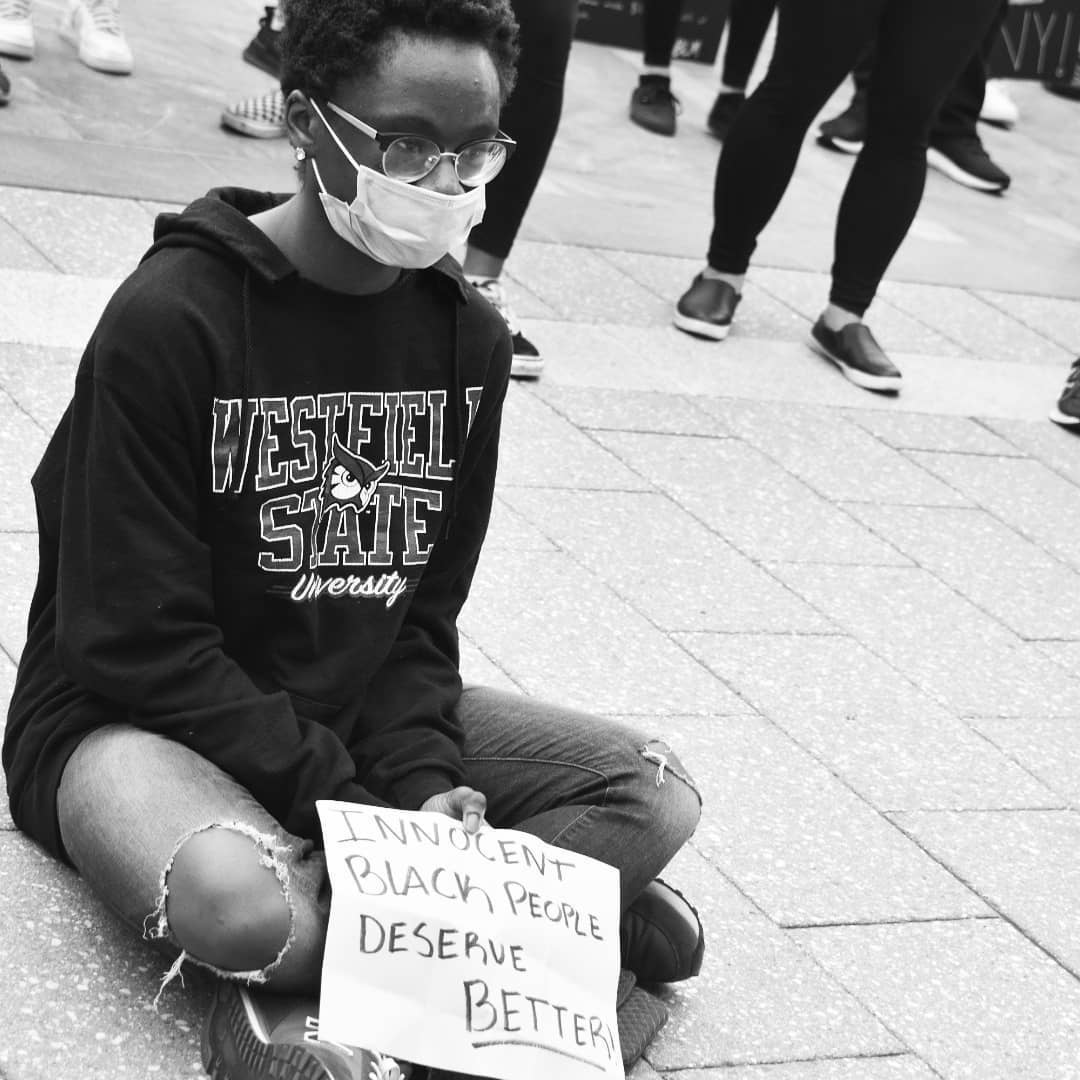 VY!
WESTFIEL
STATE
University
INNOCENT
BLACK PEOPLE
DESERVE
BETTER!